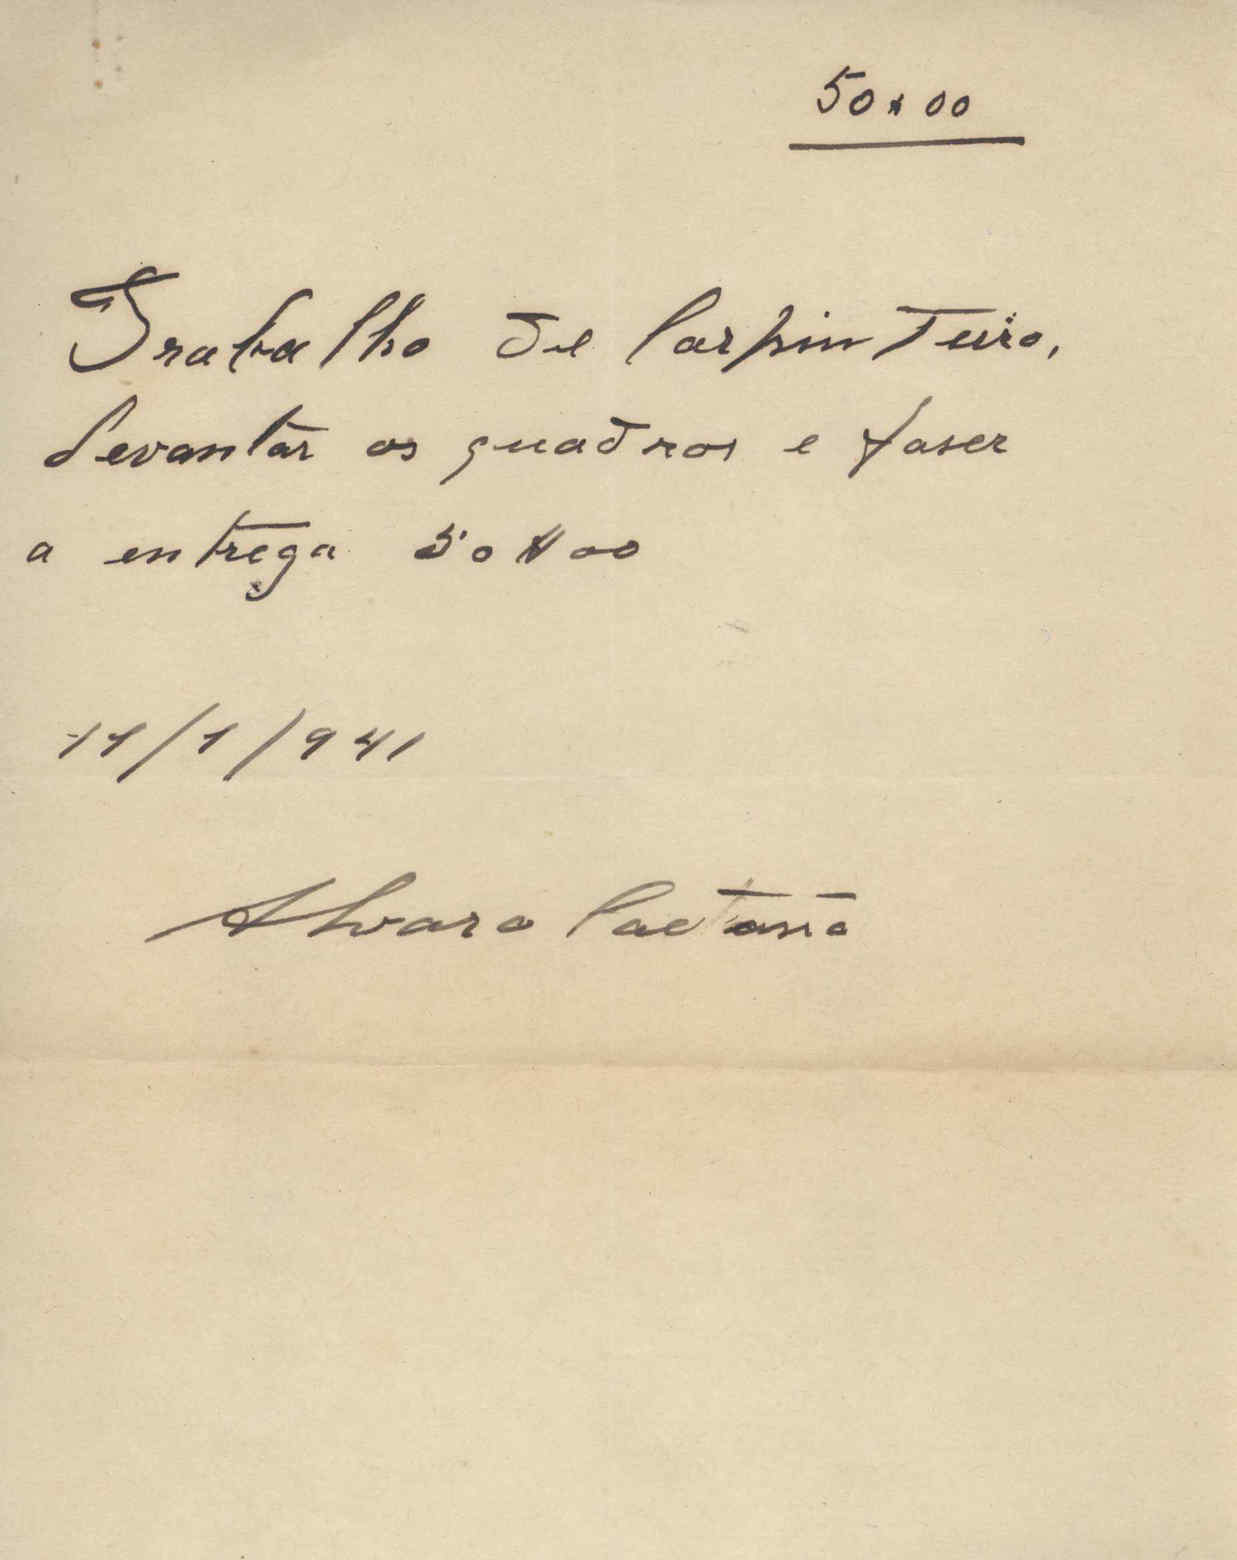 50$00
Trabalho de Carpinteiro,
levantar os quadros e faser
a entrega 50$00
11/1/941
Alvaro Caetano